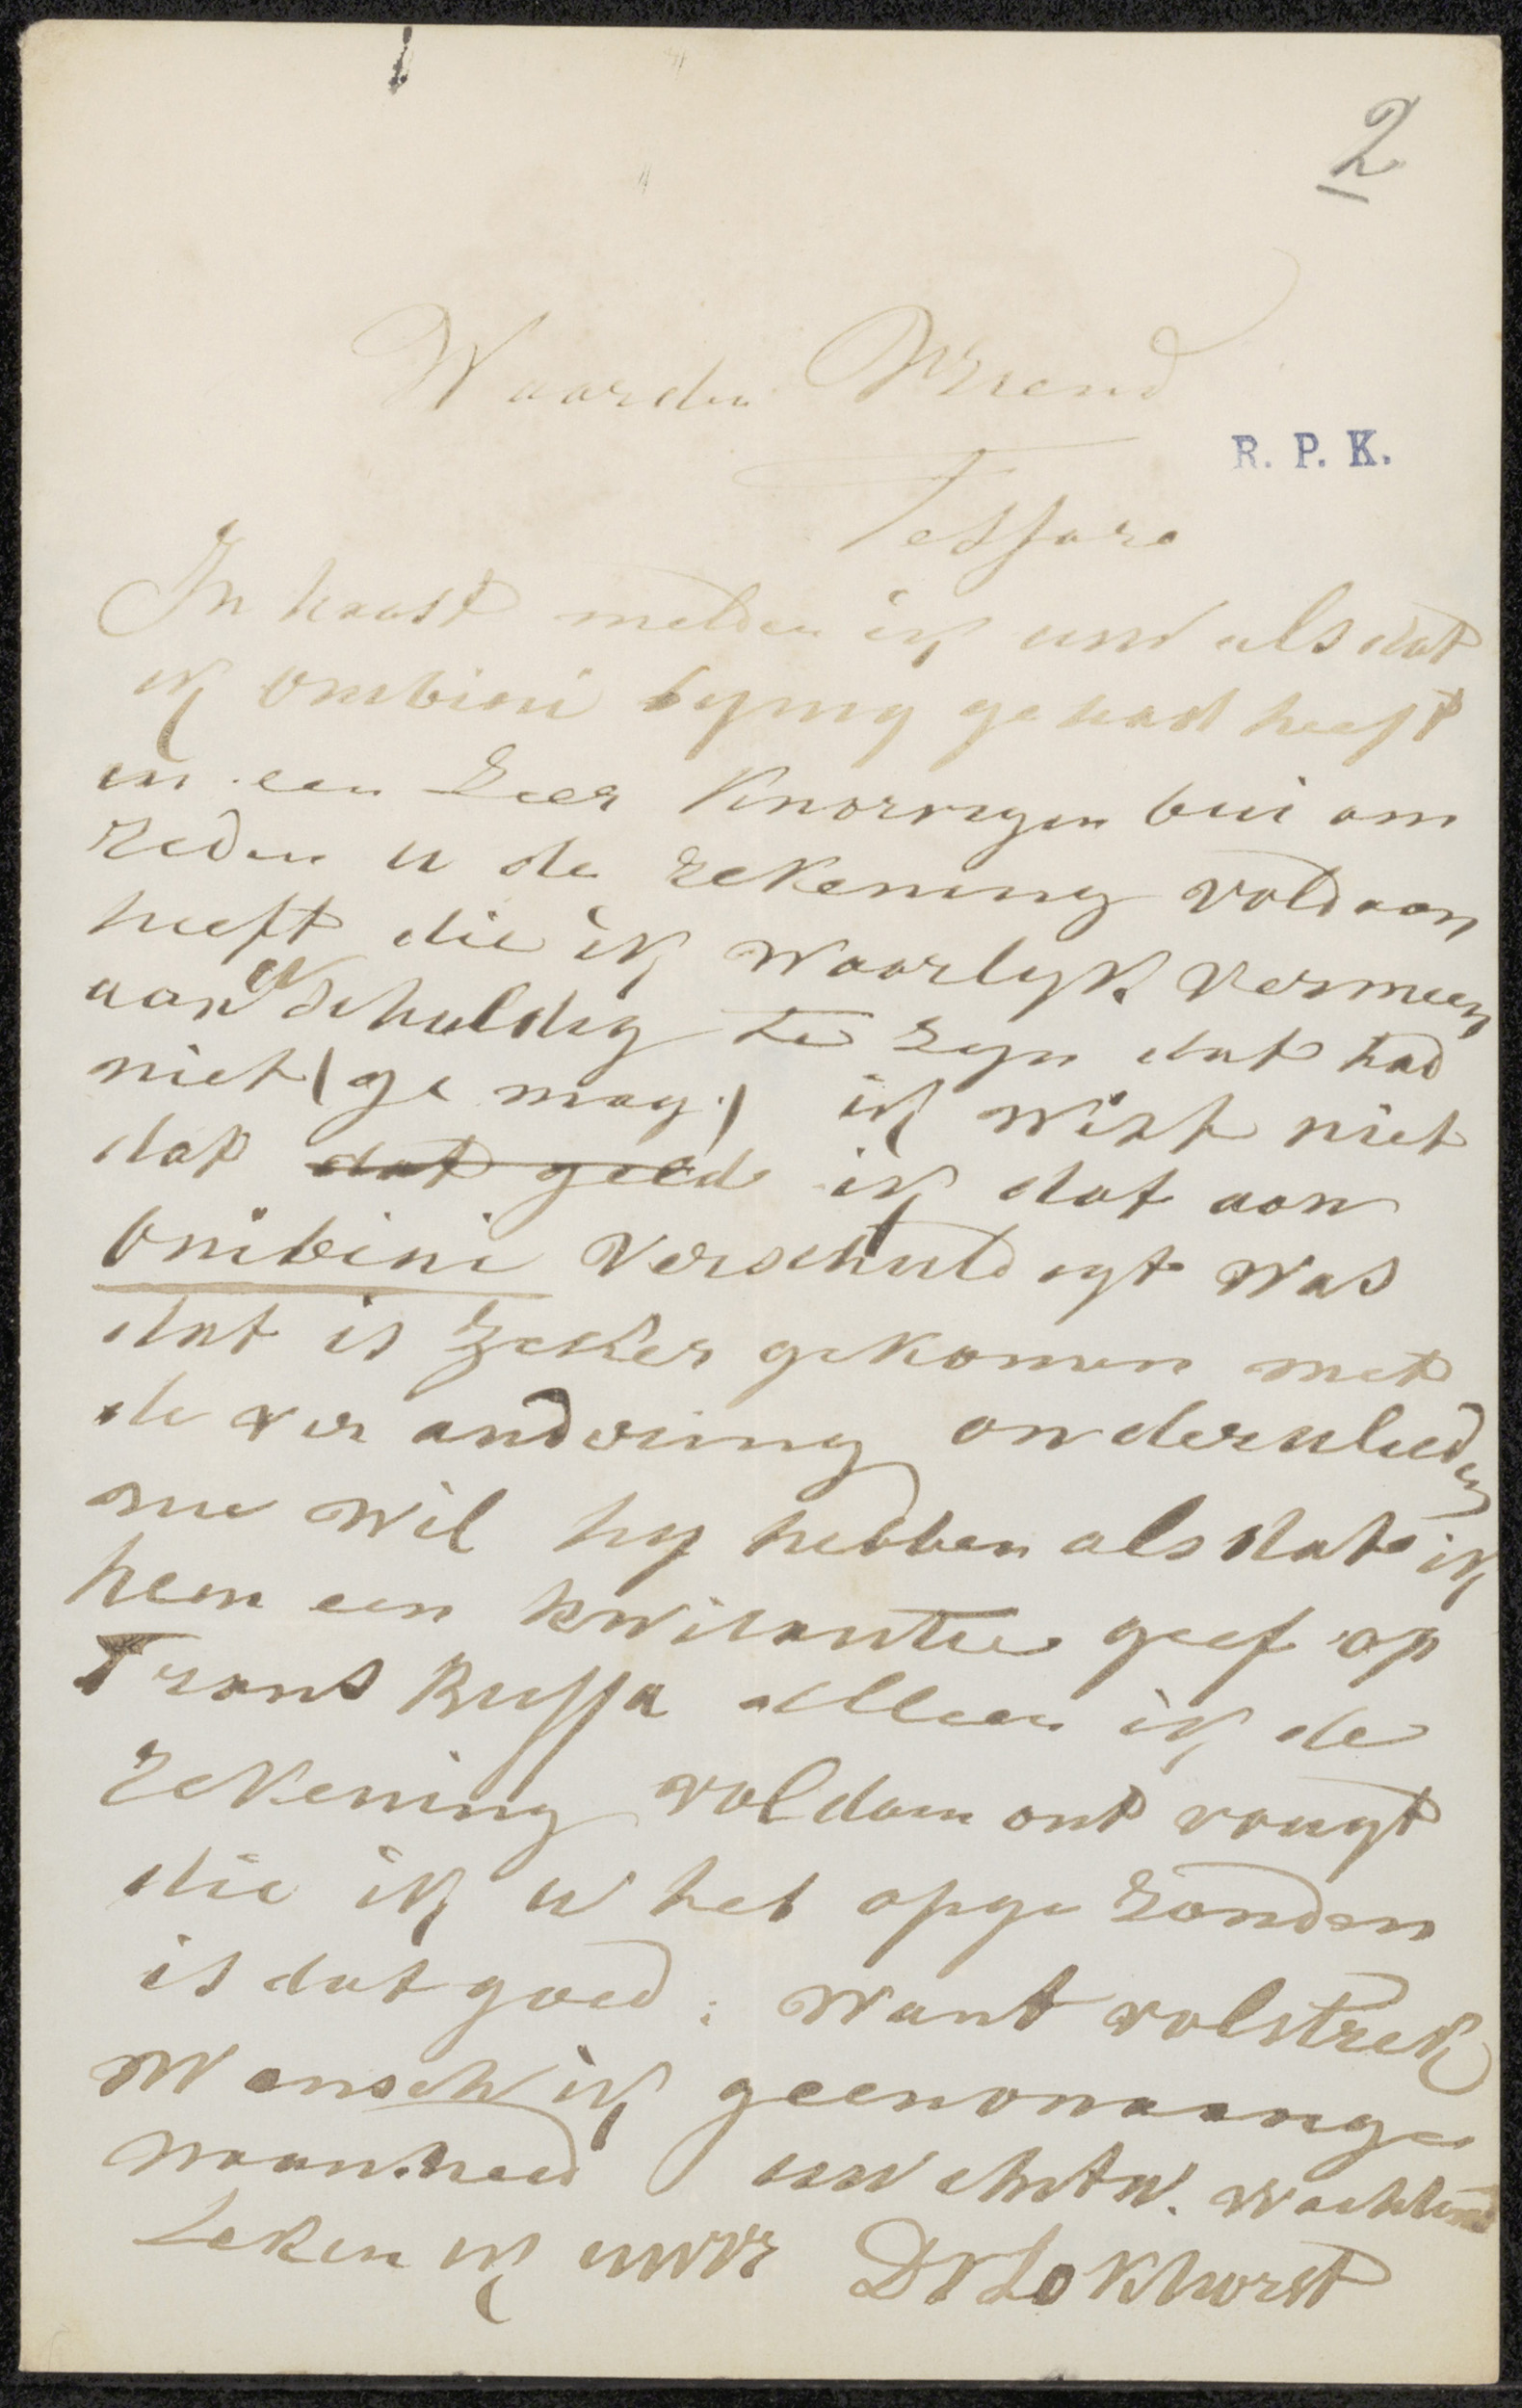 2
Waarden Vriend
R. P. K.
Tessaro
In haast melden ik uw als dat
ik Ombini by my gehad heeft
in een zeer knorrigen bui om
reden u de rekening voldaan
heeft die ik waarlyk vermeen
aan U schuldig te zyn dat had
niet (ge mag.) ik wist niet
dat dat geld ik dat aan
Ombini verschuldigt was
dat is zeker gekomen met
de verandering onderulieden
nu wil hy hebben als dat ik
hem een kwitantie geef op
Frans Buffa alleen ik de
rekening voldaan ont vangt
die ik u heb opge zonden
is dat goed. want volstrek
Wensch ik geen onaange
naamheed uw antw. wachtend
teken ik uwvr D V Lokhorst